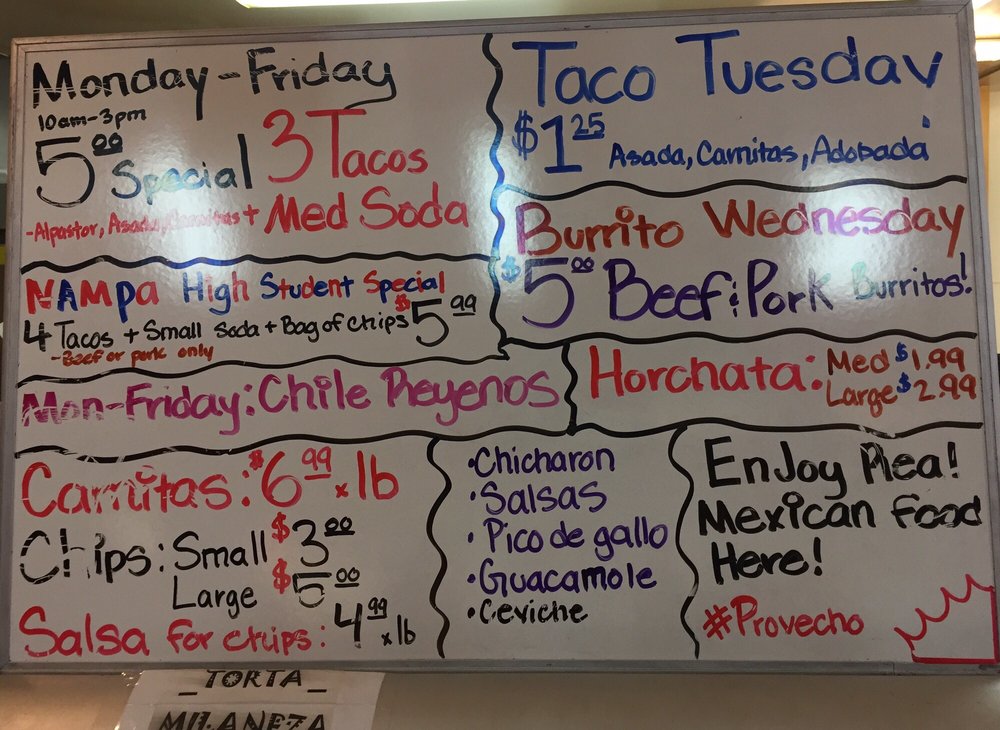 Monday-Friday
10am-3pm
5 00 Special 3 Tacos
-Alpastor, Asada, Carnitas + Med Soda
NAMPA High Student Special
4 Tacos + Small Soda + Bag of chips $5 99
-Beef or pork only
Mon-Friday: Chile Reyenos
Carnitas: $6 99 x lb
Chips: Small $3 00
Large $5 00
Salsa for chips: 4 99 x lb
Taco Tuesday
$1 25 Asada, Carnitas, Adobada
Burrito Wednesday
$5 00 Beef & Pork Burritos!
Horchata: Med $1.99
Large $2.99
•Chicharon
•Salsas
•Pico de gallo
•Guacamole
•Ceviche
EnJoy Rea!
Mexican food
Here!
#Provecho
_TORTA_
MILANEZA